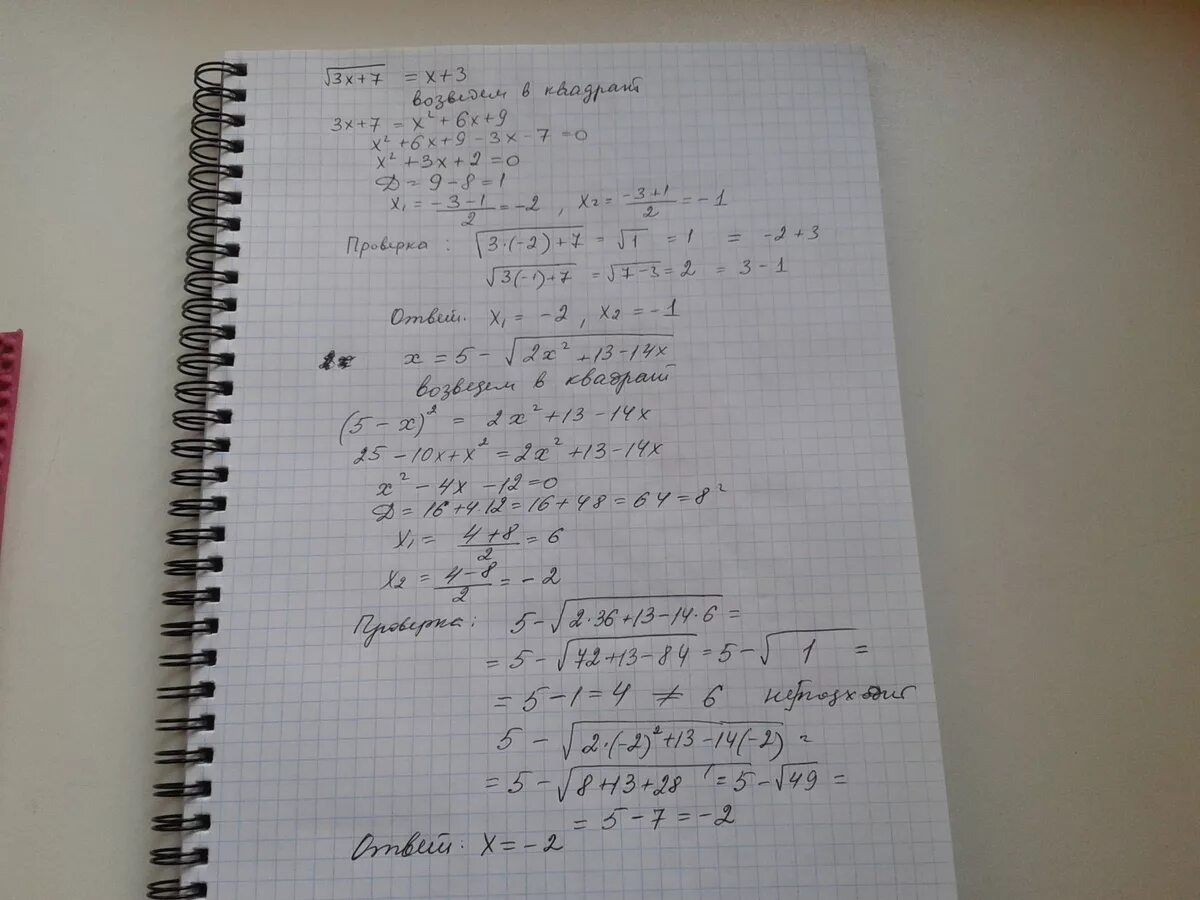 √(3x+7) = x+3
возведем в квадрат
3x+7 = x²+6x+9
x²+6x+9-3x-7=0
x²+3x+2=0
D=9-8=1
x₁=(-3-1)/2=-2, x₂=(-3+1)/2=-1
Проверка: √(3·(-2)+7)=√1 =1 = -2+3
√(3(-1)+7) =√(7-3)=2 = 3-1
Ответ. x₁= -2, x₂=-1
x=5-√(2x²+13-14x)
возведем в квадрат
(5-x)² = 2x²+13-14x
25-10x+x²=2x²+13-14x
x²-4x-12=0
D=16+4·12=16+48=64=8²
x₁= (4+8)/2=6
x₂=(4-8)/2=-2
Проверка: 5-√(2·36+13-14·6)=
=5-√(72+13-84)=5-√1 =
=5-1=4 ≠ 6 не подходит
5-√(2·(-2)²+13-14(-2))=
=5-√(8+13+28)=5-√49=
=5-7=-2
Ответ. x=-2